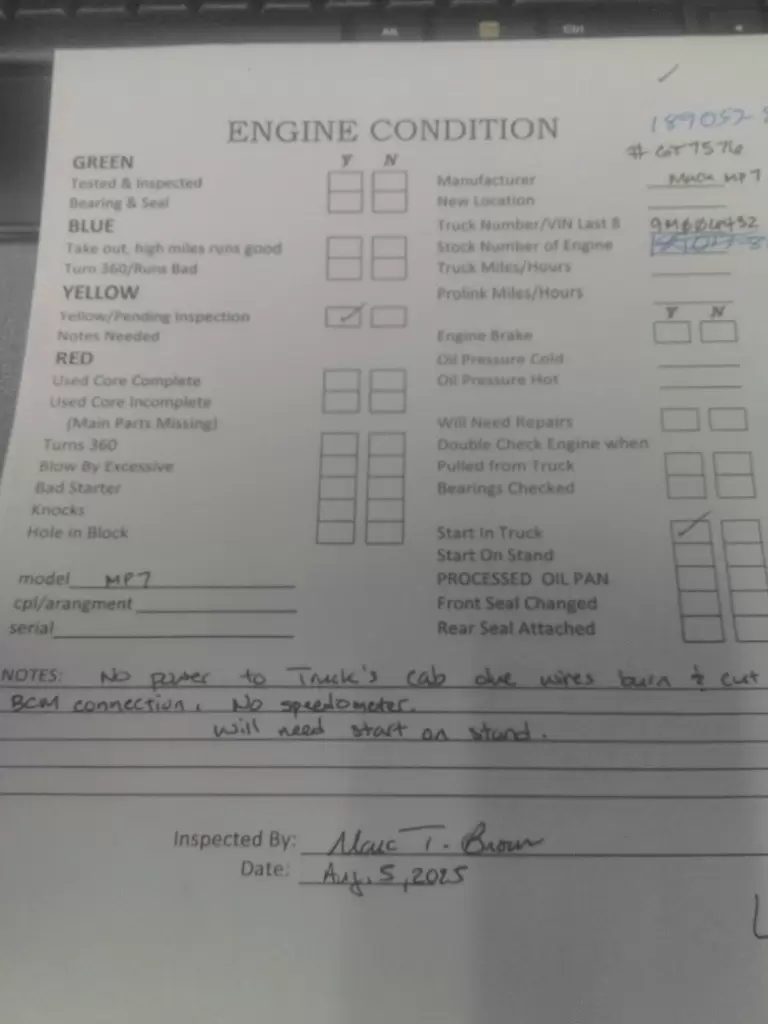 Alt
Ctrl
ENGINE CONDITION
189052
# GT7576
GREEN Y N
Tested & Inspected
Bearing & Seal
BLUE
Take out, high miles runs good
Turn 360/Runs Bad
YELLOW
Yellow/Pending Inspection
Notes Needed
RED
Used Core Complete
Used Core Incomplete
(Main Parts Missing)
Turns 360
Blow By Excessive
Bad Starter
Knocks
Hole in Block
model MP7
cpl/arangment
serial
Manufacturer Mack MP7
New Location
Truck Number/VIN Last 8
Stock Number of Engine
Truck Miles/Hours
Prolink Miles/Hours
Y N
Engine Brake
Oil Pressure Cold
Oil Pressure Hot
Will Need Repairs
Double Check Engine when
Pulled from Truck
Bearings Checked
Start In Truck
Start On Stand
PROCESSED OIL PAN
Front Seal Changed
Rear Seal Attached
NOTES: No power to Truck's cab due wires burn & cut
BCM connection. No speedometer.
Will need start on stand.
Inspected By: Marc T. Brown
Date: Aug. 5, 2025